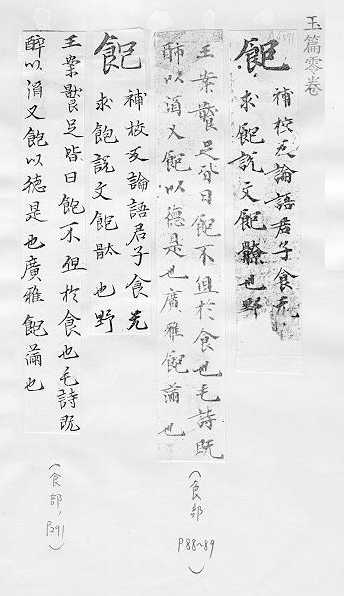 玉篇零卷
飽
補校反論語君子食无
求飽說文飽也野
王案足皆曰飽不但於食也毛詩既
醉以酒又飽以德是也廣雅飽滿也
(食部
P88~89)
飽
補校反論語君子食无
求飽說文飽也野
王案足皆曰飽不但於食也毛詩既
醉以酒又飽以德是也廣雅飽滿也
(食部,
P291)